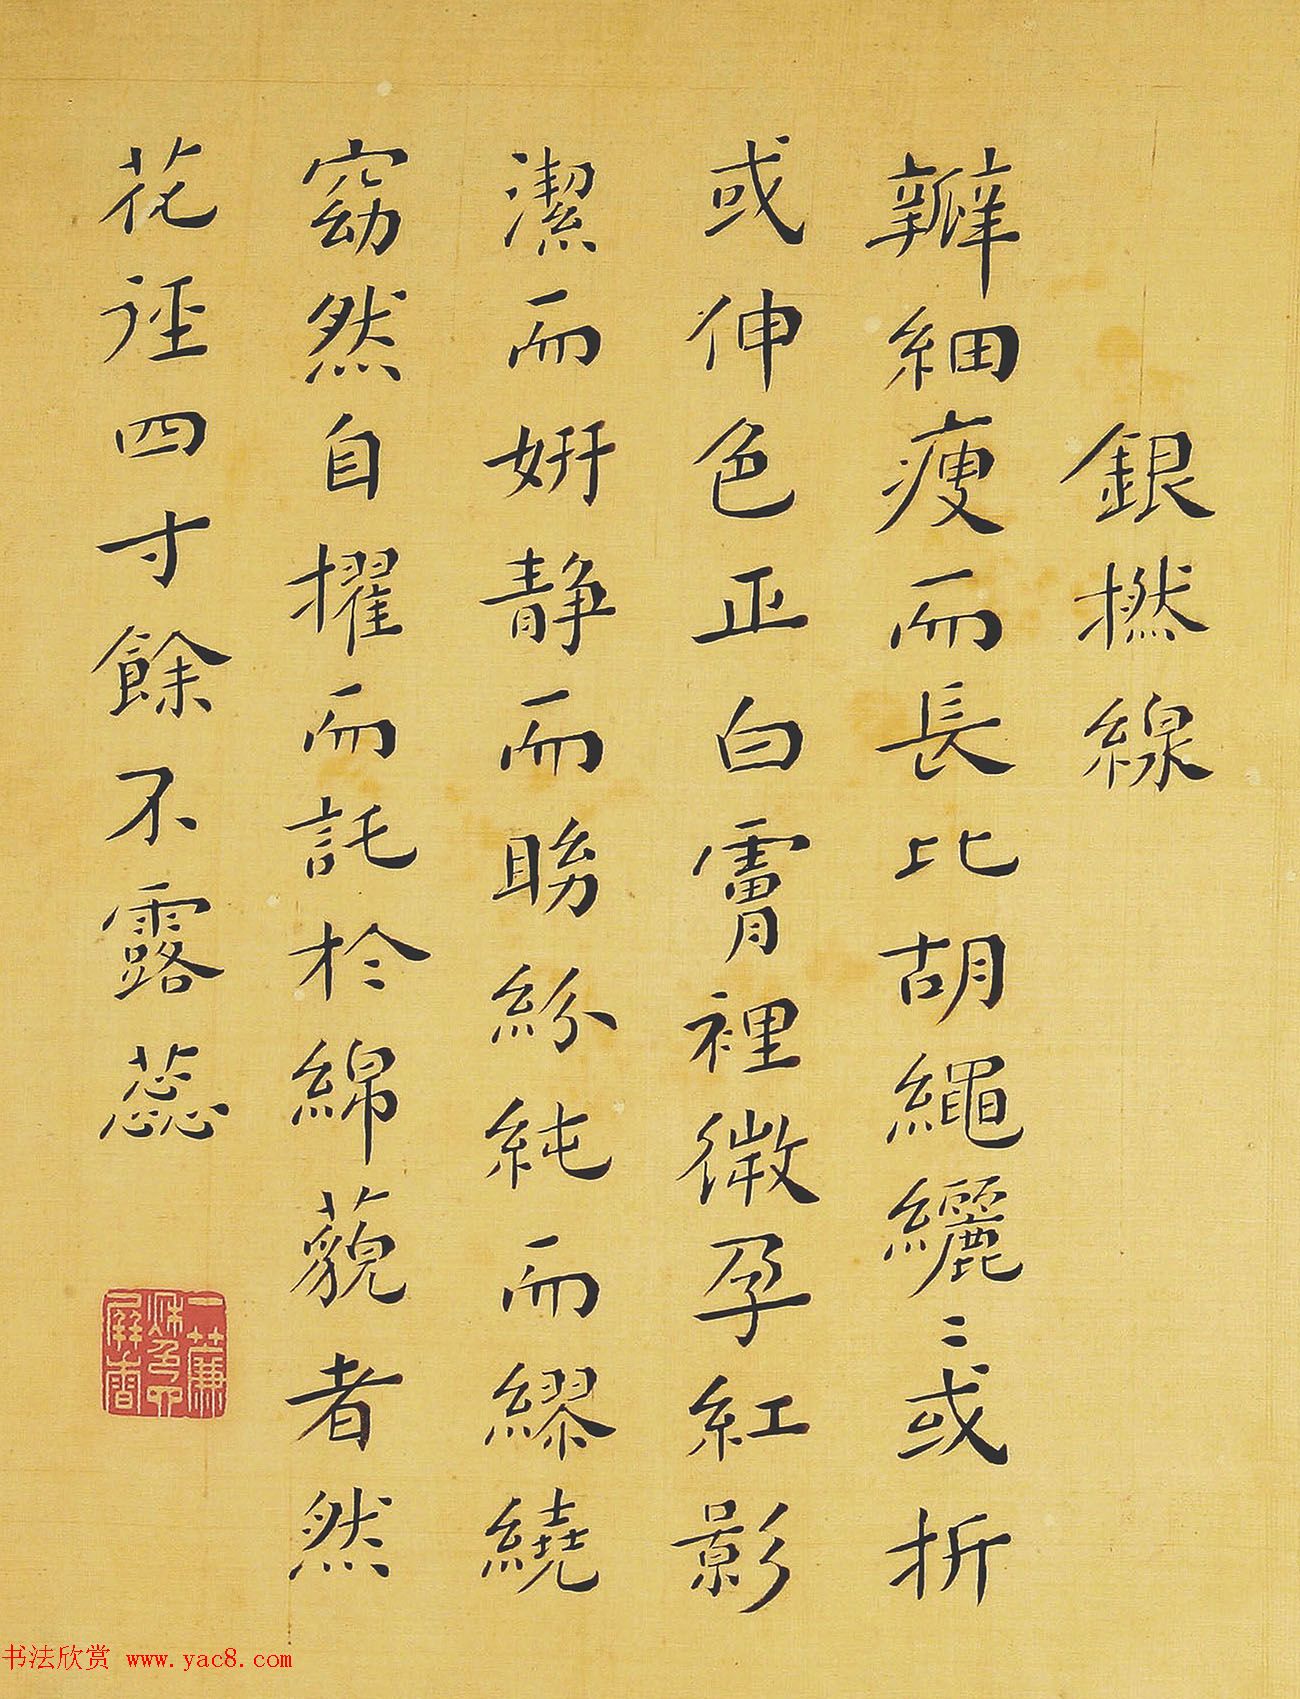 銀撚線
瓣細瘦而長比胡繩纚〻或折
或伸色正白膚裡微孕紅影
潔而妍静而眇紛純而繆繞
窈然自擢而託於綿藐者然
花徑四寸餘不露蕊
书法欣赏 www.yac8.com